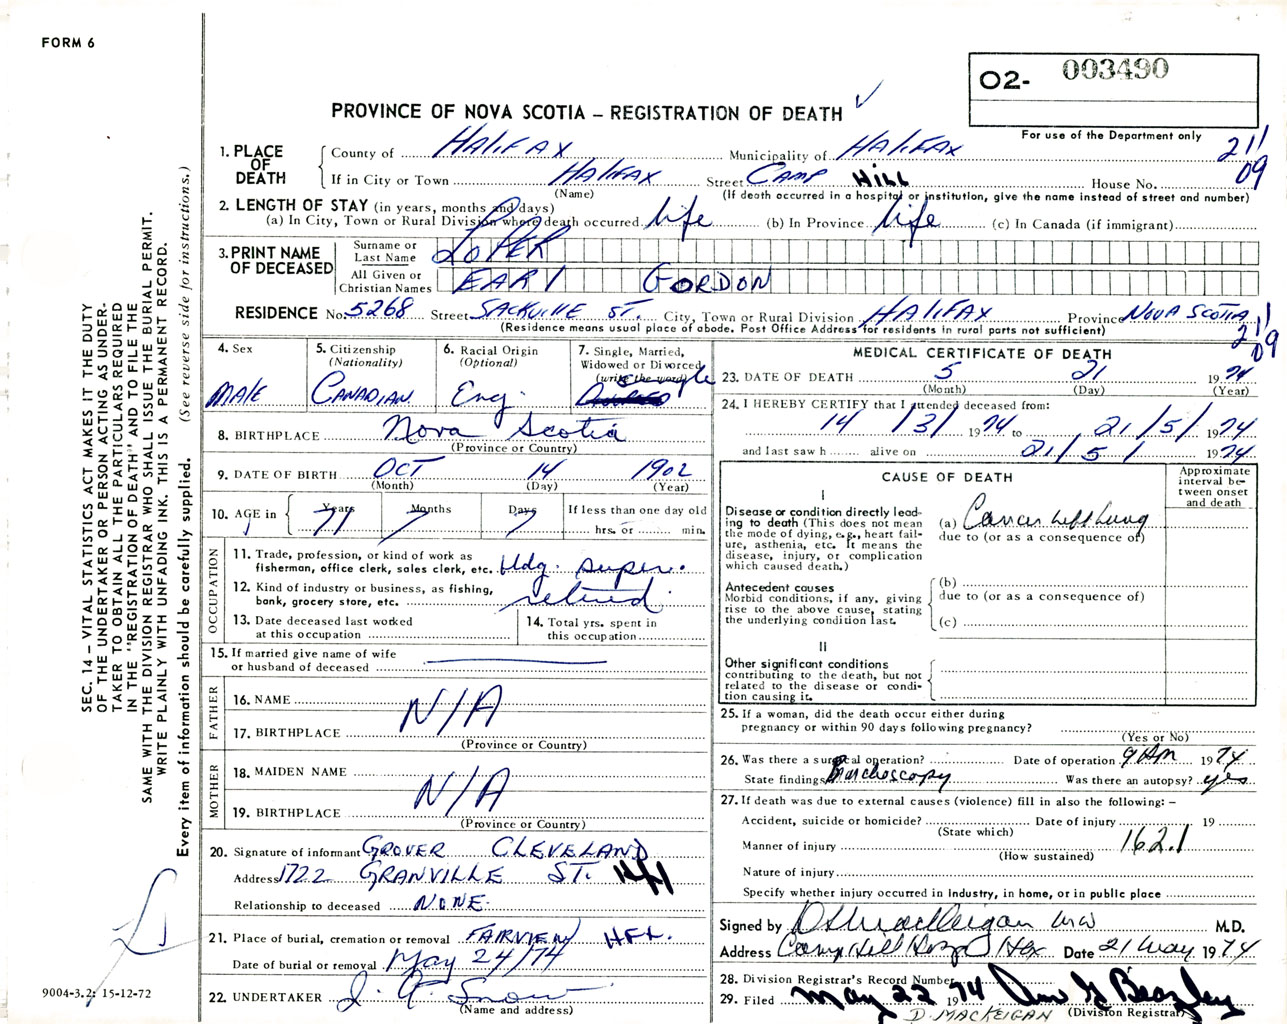 FORM 6
O2- 003490
PROVINCE OF NOVA SCOTIA – REGISTRATION OF DEATH ✓
For use of the Department only
21/
09
1. PLACE OF DEATH
County of HALIFAX Municipality of HALIFAX
If in City or Town HALIFAX Street CAMP HILL House No.
(Name) (If death occurred in a hospital or institution, give the name instead of street and number)
2. LENGTH OF STAY (in years, months and days)
(a) In City, Town or Rural Division where death occurred life (b) In Province life (c) In Canada (if immigrant)
3. PRINT NAME OF DECEASED
Surname or Last Name LOPER
All Given or Christian Names EARl GORDON
RESIDENCE No. 5268 Street SACKVILLE ST. City, Town or Rural Division HALIFAX Province NOVA SCOTIA
(Residence means usual place of abode. Post Office Address for residents in rural parts not sufficient)
21/
09
4. Sex
MALE
5. Citizenship
(Nationality)
CANADIAN
6. Racial Origin
(Optional)
Eng.
7. Single, Married,
Widowed or Divorced
(write the word)
single
8. BIRTHPLACE Nova Scotia
(Province or Country)
9. DATE OF BIRTH OCT 14 1902
(Month) (Day) (Year)
10. AGE in Years Months Days If less than one day old
71 7 7
hrs. or min.
OCCUPATION
11. Trade, profession, or kind of work as
fisherman, office clerk, sales clerk, etc. bldg. super.
12. Kind of industry or business, as fishing,
bank, grocery store, etc. retired
13. Date deceased last worked
at this occupation
14. Total yrs. spent in
this occupation
15. If married give name of wife
or husband of deceased
FATHER
16. NAME
N/A
17. BIRTHPLACE
(Province or Country)
MOTHER
18. MAIDEN NAME
N/A
19. BIRTHPLACE
(Province or Country)
20. Signature of informant GROVER CLEVELAND
Address 1722 GRANVILLE ST. Hfx
Relationship to deceased NONE
21. Place of burial, cremation or removal FAIRVIEW HFX.
Date of burial or removal May 24/74
22. UNDERTAKER J. A. Snow
(Name and address)
MEDICAL CERTIFICATE OF DEATH
23. DATE OF DEATH 5 21 1974
(Month) (Day) (Year)
24. I HEREBY CERTIFY that I attended deceased from:
14 /3/ 1974 to 21/5/ 1974
and last saw h alive on 21/5/ 1974
CAUSE OF DEATH
Approximate
interval be-
tween onset
and death
I
Disease or condition directly lead-
ing to death (This does not mean
the mode of dying, e.g., heart fail-
ure, asthenia, etc. It means the
disease, injury, or complication
which caused death.)
(a) Cancer Left Lung
due to (or as a consequence of)
Antecedent causes
Morbid conditions, if any, giving
rise to the above cause, stating
the underlying condition last.
(b)
due to (or as a consequence of)
(c)
II
Other significant conditions
contributing to the death, but not
related to the disease or condi-
tion causing it.
25. If a woman, did the death occur either during
pregnancy or within 90 days following pregnancy?
(Yes or No)
26. Was there a surgical operation? Date of operation 9 Apr 1974
State findings Bronchoscopy Was there an autopsy? yes
27. If death was due to external causes (violence) fill in also the following: –
Accident, suicide or homicide? Date of injury 19
(State which)
Manner of injury 162.1
(How sustained)
Nature of injury
Specify whether injury occurred in industry, in home, or in public place
Signed by D S MacKeigan M.D.
Address Camp Hill Hosp Hfx Date 21 May 1974
28. Division Registrar's Record Number
29. Filed May 22 1974
D. MACKEIGAN (Division Registrar)
SEC. 14 – VITAL STATISTICS ACT MAKES IT THE DUTY
OF THE UNDERTAKER OR PERSON ACTING AS UNDER-
TAKER TO OBTAIN ALL THE PARTICULARS REQUIRED
IN THE "REGISTRATION OF DEATH" AND TO FILE THE
SAME WITH THE DIVISION REGISTRAR WHO SHALL ISSUE THE BURIAL PERMIT.
WRITE PLAINLY WITH UNFADING INK. THIS IS A PERMANENT RECORD.
Every item of information should be carefully supplied. (See reverse side for instructions.)
9004-3.2: 15-12-72